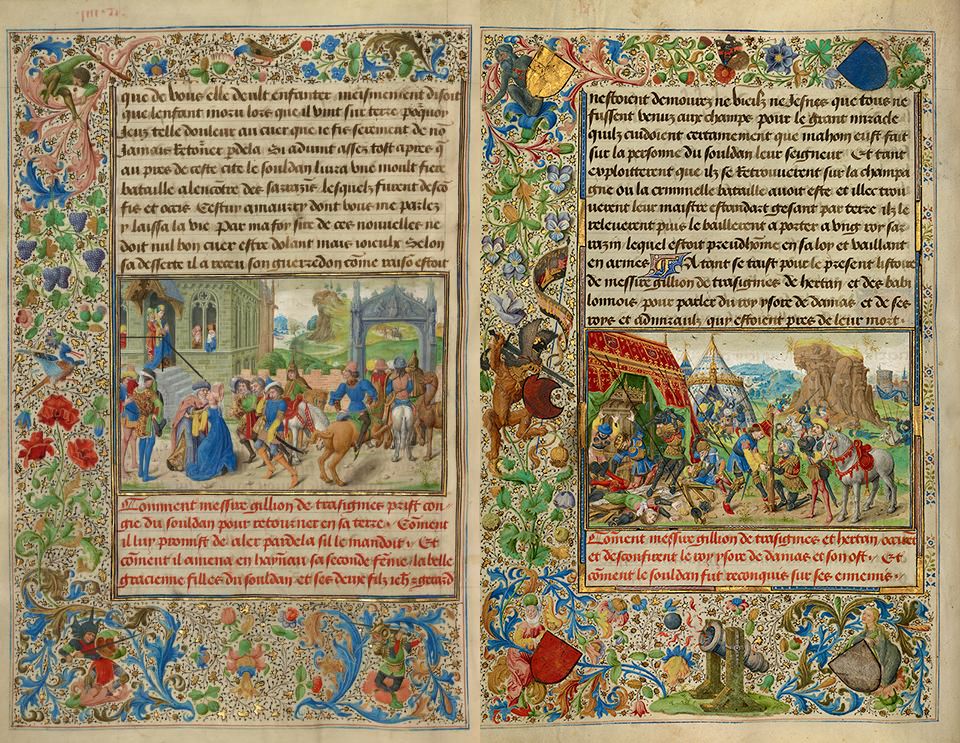 que de vous elle deult enfanter meismement disoit
que lenfant moru lors que il vint sur terre poquoy
Jeuz telle douleur au cuer que ie fis serement de no
Jamais Retorner pdela Si aduint asses tost apres q
au pres de ceste cite le souldan liura vne moult fiere
bataille alencotre des sarrazis lesquelz furent desco
fis et occis Cestuy amaurry dont vous me parlez
y laissa la vie par ma foy sire de ces nouuelles ne
doit nul bon cuer estre dolant mais ioieulx Selon
sa desserte il a receu son guerredon come raiso estoit
Comment messire gillion de trasignies prist con
gie du souldan pour retourner en sa terre Coment
il luy promist de aler pardela sil le mandoit Et
coment il amena en haynau sa seconde feme la belle
gracienne fille du souldan et ses deux filz Jeh gerard
nestoient demourez ne vieilz ne Jesnes que tous ne
fussent venuz aux champs pour le grant miracle
quilz cuidoient certainement que mahom eust fait
sur la personne du souldan leur seigneur Et tant
exploitterent que ilz se Retrouuerent sur la champai
gne ou la criminelle bataille auoit este et illec trou
uerent leur maistre estandart gesant par terre ilz le
releuerent puis le baillerent a porter a vng roy sar
razin lequel estoit preudhome en sa loy et vaillant
en armes A tant se taist pour le present listoire
de messire gillion de trasignies de hertan et des babi
lonnois pour parler du roy ysore de damas et de ses
roys et admiraulx qui estoient pres de leur mort
Coment messire gillion de trasignies et hertan
et desconfirent le roy ysore de damas et son ost Et
coment le souldan fut reconquis sur ses ennemis